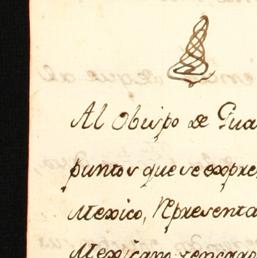 Al Obispo de Gua
puntos que se expre
Mexico, Representa
Mexicano